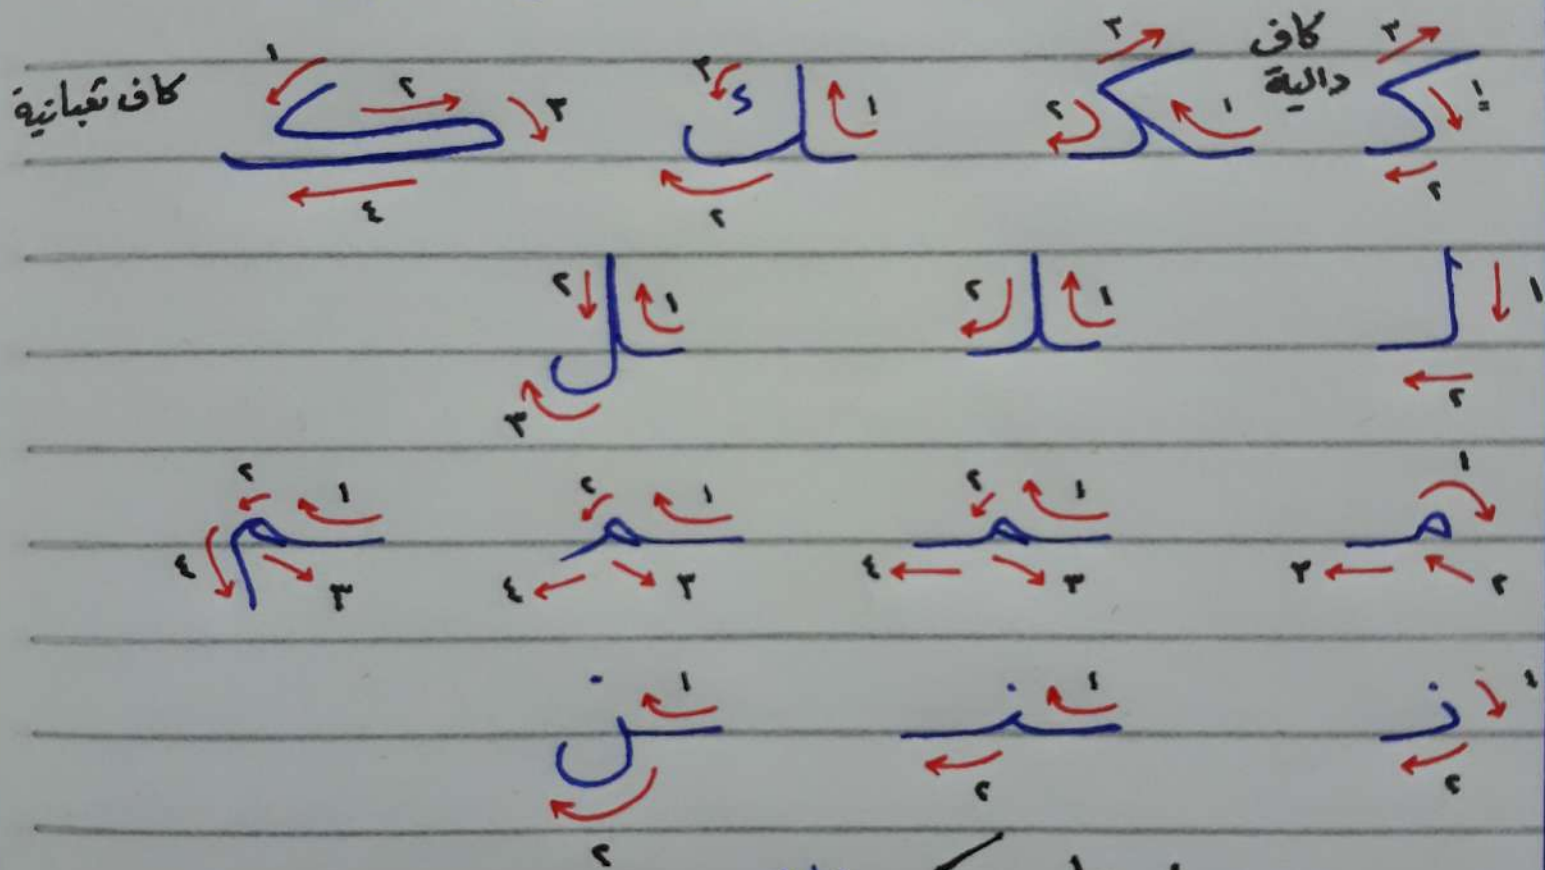 كـ ١ ٢ ٣
كاف
دالية
ـكـ ١ ٢ ٣
ـك ١ ٢ ٣
كـ ١ ٢ ٣ ٤
كاف ثعبانية
لـ ١ ٢
ـلـ ١ ٢
ـل ١ ٢ ٣
مـ ١ ٢ ٣
ـمـ ١ ٢ ٣ ٤
ـم ١ ٢ ٣ ٤
ـم ١ ٢ ٣ ٤
نـ ١ ٢
ـنـ ١ ٢
ـن ١ ٢